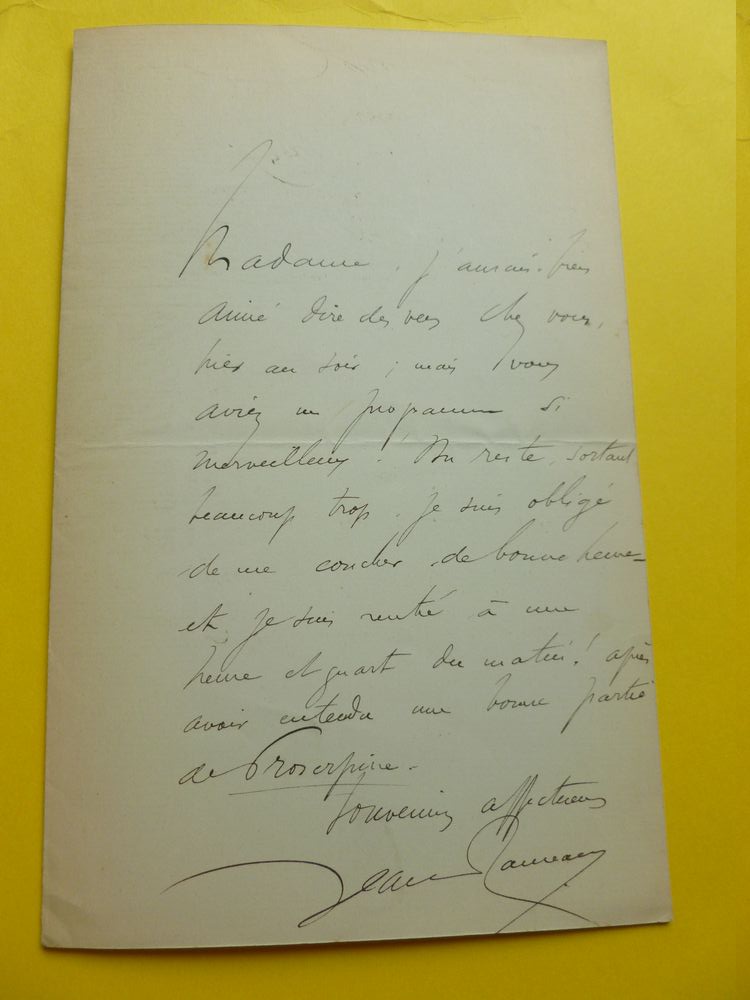 Madame, j'aurais bien
aimé dire des vers chez vous,
hier au soir ; mais vous
aviez un programme si
merveilleux ! Du reste, sortant
beaucoup trop, je suis obligé
de me coucher de bonne heure –
et je suis rentré à une
heure et quart du matin ! après
avoir entendu une bonne partie
de Proserpine.
Souvenirs affectueux
Jean Rameau